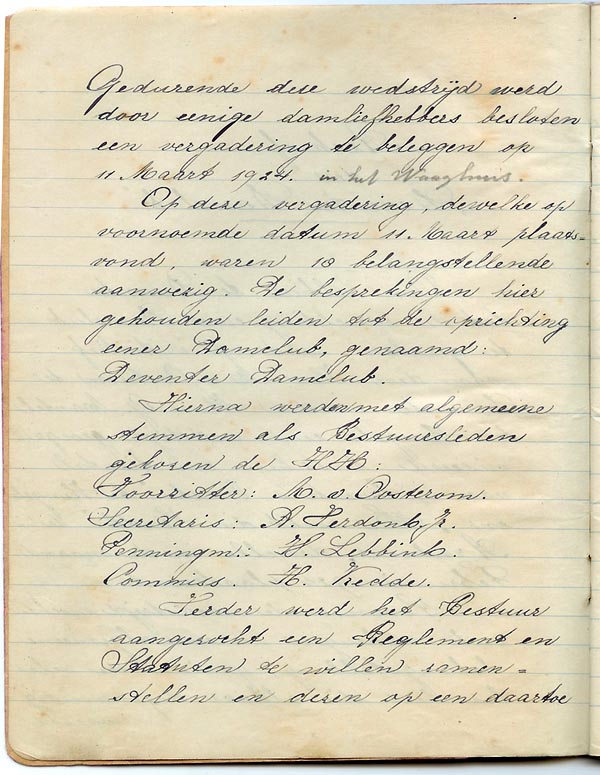 Gedurende deze wedstrijd werd
door eenige damliefhebbers besloten
een vergadering te beleggen op
11 Maart 1924. in het Waaghuis.
Op deze vergadering, dewelke op
voornoemde datum 11 Maart plaats-
vond, waren 18 belangstellende
aanwezig. De besprekingen hier
gehouden leiden tot de oprichting
eener Damclub, genaamd:
Deventer Damclub.
Hierna werden met algemeene
stemmen als Bestuursleden
gekozen de HH:
Voorzitter: M. v. Oosterom.
Secretaris: A. Verdonk, Jr.
Penningm.: H. Lebbink.
Commiss. H. Kedde.
Verder werd het Bestuur
aangezocht een Reglement en
Statuten te willen samen=
stellen en dezen op een daartoe